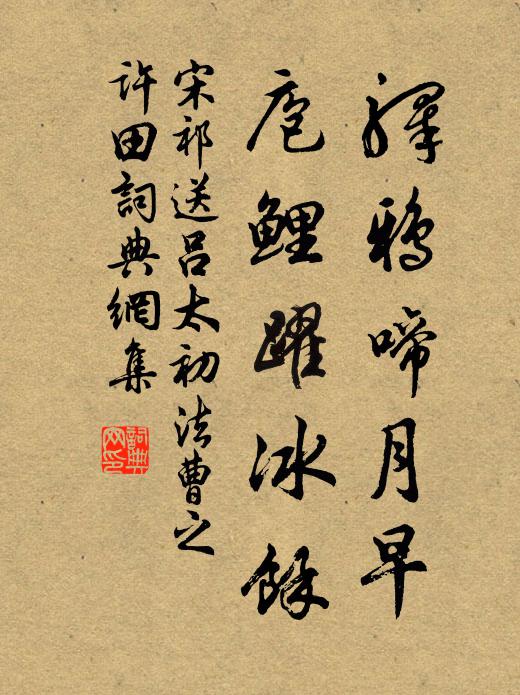 驛鴉啼月早
庖鯉躍冰餘
宋祁送呂太初法曹之
許田詞典網集
詞典
网印